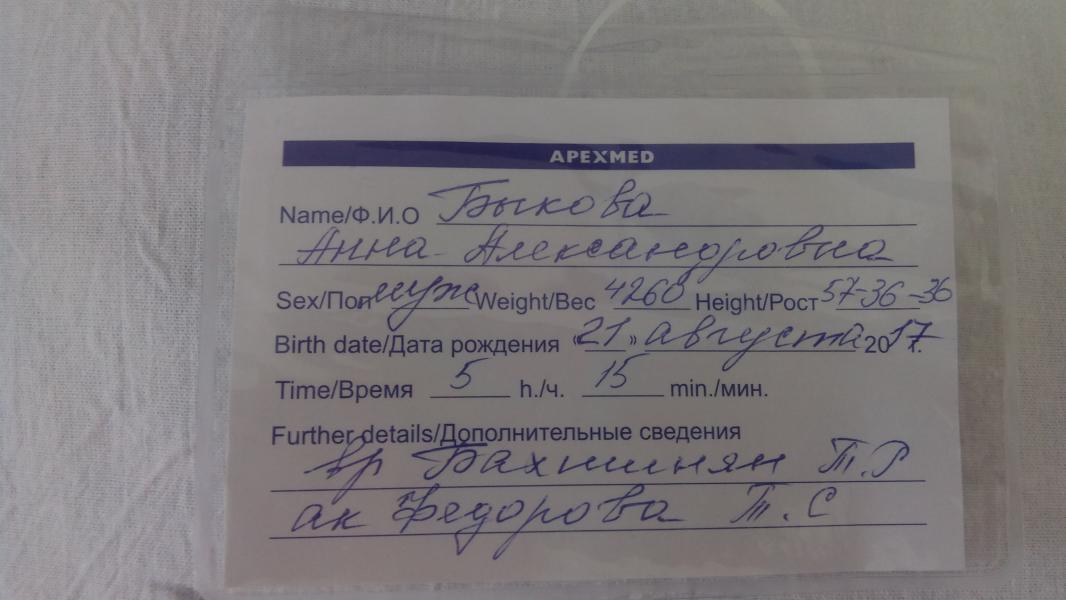 APEXMED
Name/Ф.И.О Быкова
Анна Александровна
Sex/Пол муж Weight/Вес 4260 Height/Рост 57-36-36
Birth date/Дата рождения «21» августа 2017 г.
Time/Время 5 h./ч. 15 min./мин.
Further details/Дополнительные сведения
вр Бахшинян Т.Р
ак Федорова Т.С